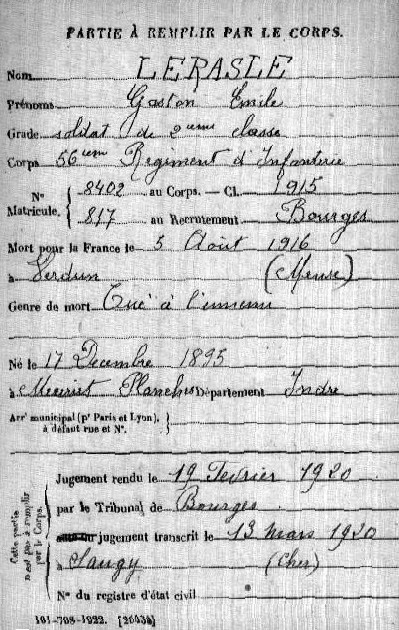 PARTIE À REMPLIR PAR LE CORPS.
Nom LERASLE
Prénoms Gaston Emile
Grade soldat de 2eme classe
Corps 56em Régiment d'Infanterie
N° Matricule. 8402 au Corps. — Cl. 1915
817 au Recrutement Bourges
Mort pour la France le 5 Août 1916
à Verdun (Meuse)
Genre de mort Tué à l'ennemi
Né le 17 Decembre 1895
à Département Indre
Arrt municipal (pr Paris et Lyon),
à défaut rue et N°.
Cette partie n'est pas à remplir par le Corps.
Jugement rendu le 19 Fevrier 1920
par le Tribunal de Bourges
jugement transcrit le 13 mars 1920
à (Cher)
N° du registre d'état civil
101-708-1922. [26434]